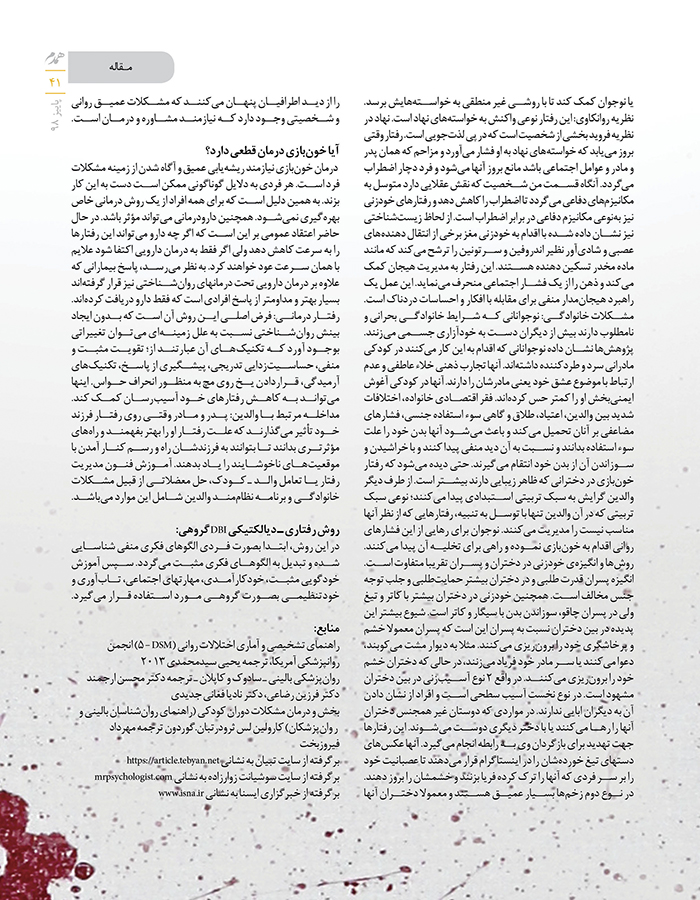 مقاله
همدم
۴۱
پاییز ۹۸
یا نوجوان کمک کند تا با روشی غیر منطقی به خواسته‌هایش برسد.
نظریه روانکاوی: این رفتار نوعی واکنش به خواسته‌های نهاد است. نهاد در
نظریه فروید بخشی از شخصیت است که در پی لذت‌جویی است. رفتار وقتی
بروز می‌یابد که خواسته‌های نهاد به او فشار می‌آورد و مزاحم که همان پدر
و مادر و عوامل اجتماعی باشد مانع بروز آنها می‌شود و فرد دچار اضطراب
می‌گردد. آنگاه قسمت من شخصیت که نقش عقلایی دارد متوسل به
مکانیزم‌های دفاعی می‌گردد تا اضطراب را کاهش دهد و رفتارهای خودزنی
نیز به‌نوعی مکانیزم دفاعی در برابر اضطراب است. از لحاظ زیست‌شناختی
نیز نشان داده شده با اقدام به خودزنی مغز برخی از انتقال دهنده‌های
عصبی و شادی‌آور نظیر اندروفین و سرتونین را ترشح می‌کند که مانند
ماده مخدر تسکین دهنده هستند. این رفتار به مدیریت هیجان کمک
می‌کند و ذهن را از یک فشار اجتماعی منحرف می‌نماید. این عمل یک
راهبرد هیجان‌مدار منفی برای مقابله با افکار و احساسات دردناک است.
مشکلات خانوادگی: نوجوانانی که شرایط خانوادگی بحرانی و
نامطلوب دارند بیش از دیگران دست به خودآزاری جسمی می‌زنند.
پژوهش‌ها نشان داده نوجوانانی که اقدام به این کار می‌کنند در کودکی
مادرانی سرد و طرد کننده داشته‌اند. آنها تجارب ذهنی خلاء عاطفی و عدم
ارتباط با موضوع عشق خود یعنی مادرشان را دارند. آنها در کودکی آغوش
ایمنی‌بخش او را کمتر حس کرده‌اند. فقر اقتصادی خانواده، اختلافات
شدید بین والدین، اعتیاد، طلاق و گاهی سوء استفاده جنسی، فشارهای
مضاعفی بر آنان تحمیل می‌کند و باعث می‌شود آنها بدن خود را علت
سوء استفاده بدانند و نسبت به آن دید منفی پیدا کنند و با خراشیدن و
سوزاندن آن از بدن خود انتقام می‌گیرند. حتی دیده می‌شود که رفتار
خون‌بازی در دخترانی که ظاهر زیبایی دارند بیشتر است. از طرف دیگر
والدین گرایش به سبک تربیتی استبدادی پیدا می‌کنند؛ نوعی سبک
تربیتی که در آن والدین تنها با توسل به تنبیه، رفتارهایی که از نظر آنها
مناسب نیست را مدیریت می‌کنند. نوجوان برای رهایی از این فشارهای
روانی اقدام به خون‌بازی نموده و راهی برای تخلیه آن پیدا می‌کنند.
روش‌ها و انگیزه‌ی خودزنی در دختران و پسران تقریبا متفاوت است.
انگیزه پسران قدرت طلبی و در دختران بیشتر حمایت‌طلبی و جلب توجه
جنس مخالف است. همچنین خودزنی در دختران بیشتر با کاتر و تیغ
ولی در پسران چاقو، سوزاندن بدن با سیگار و کاتر است. شیوع بیشتر این
پدیده در بین دختران نسبت به پسران این است که پسران معمولا خشم
و پرخاشگری خود را برون‌ریزی می‌کنند. مثلا به دیوار مشت می‌کوبند،
دعوا می‌کنند یا سر مادر خود فریاد می‌زنند، در حالی که دختران خشم
خود را برون‌ریزی می‌کنند. در واقع ۲ نوع آسیب‌زنی در بین دختران
مشهود است. در نوع نخست آسیب سطحی است و افراد از نشان دادن
آن به دیگران ابایی ندارند. در مواردی که دوستان غیر همجنس دختران
آنها را رها می‌کنند یا با دختر دیگری دوست می‌شوند. این رفتارها
جهت تهدید برای بازگردان وی به رابطه انجام می‌گیرد. آنها عکس‌های
دستهای تیغ خورده‌شان را در اینستاگرام قرار می‌دهند تا عصبانیت خود
را بر سر فردی که آنها را ترک کرده فریاد بزنند و خشمشان را بروز دهند.
در نوع دوم زخم‌ها بسیار عمیق هستند و معمولا دختران آنها
را از دید اطرافیان پنهان می‌کنند که مشکلات عمیق روانی
و شخصیتی وجود دارد که نیازمند مشاوره و درمان است.
آیا خون‌بازی درمان قطعی دارد؟
درمان خون‌بازی نیازمند ریشه‌یابی عمیق و آگاه شدن از زمینه مشکلات
فرد است. هر فردی به دلایل گوناگونی ممکن است دست به این کار
بزند. به همین دلیل است که برای همه افراد از یک روش درمانی خاص
بهره‌گیری نمی‌شود. همچنین دارودرمانی می‌تواند مؤثر باشد. در حال
حاضر اعتقاد عمومی بر این است که اگر چه دارو می‌تواند این رفتارها
را به سرعت کاهش دهد ولی اگر فقط به درمان دارویی اکتفا شود علایم
با همان سرعت عود خواهند کرد. به نظر می‌رسد، پاسخ بیمارانی که
علاوه بر درمان دارویی تحت درمانهای روان‌شناختی نیز قرار گرفته‌اند
بسیار بهتر و مداومتر از پاسخ افرادی است که فقط دارو دریافت کرده‌اند.
رفتار درمانی: فرض اصلی این روش آن است که بدون ایجاد
بینش روان‌شناختی نسبت به علل زمینه‌ای می‌توان تغییراتی
بوجود آورد که تکنیک‌های آن عبارتند از؛ تقویت مثبت و
منفی، حساسیت‌زدایی تدریجی، پیشگیری از پاسخ، تکنیک‌های
آرمیدگی، قرار دادن یخ روی مچ به منظور انحراف حواس. اینها
می‌تواند به کاهش رفتارهای خود آسیب رسان کمک کند.
مداخله مرتبط با والدین: پدر و مادر وقتی روی رفتار فرزند
خود تأثیر می‌گذارند که علت رفتار او را بهتر بفهمند و راه‌های
مؤثرتری بدانند تا بتوانند به فرزندشان راه و رسم کنار آمدن با
موقعیت‌های ناخوشایند را یاد بدهند. آموزش فنون مدیریت
رفتار یا تعامل والد - کودک، حل معضلاتی از قبیل مشکلات
خانوادگی و برنامه نظام‌مند والدین شامل این موارد می‌باشد.
روش رفتاری - دیالکتیکی DBI گروهی:
در این روش، ابتدا بصورت فردی الگوهای فکری منفی شناسایی
شده و تبدیل به الگوهای فکری مثبت می‌گردد. سپس آموزش
خودگویی مثبت، خودکارآمدی، مهارتهای اجتماعی، تاب‌آوری و
خودتنظیمی بصورت گروهی مورد استفاده قرار می‌گیرد.
منابع:
راهنمای تشخیصی و آماری اختلالات روانی (DSM - ۵) انجمن
روانپزشکی آمریکا، ترجمه یحیی سیدمحمدی ۲۰۱۳
روان‌پزشکی بالینی - سادوک و کاپلان - ترجمه دکتر محسن ارجمند
دکتر فرزین رضاعی، دکتر نادیا فغانی جدیدی
بخش و درمان مشکلات دوران کودکی (راهنمای روان‌شناسان بالینی و
روان‌پزشکان) کارولین لس ثرودرتبان. گوردون ترجمه مهرداد
فیروزبخت
برگرفته از سایت تبیان به نشانی https://article.tebyan.net
برگرفته از سایت سوشیانت زوارزاده به نشانی mrpsychologist.com
برگرفته از خبرگزاری ایسنا به نشانی www.isna.ir